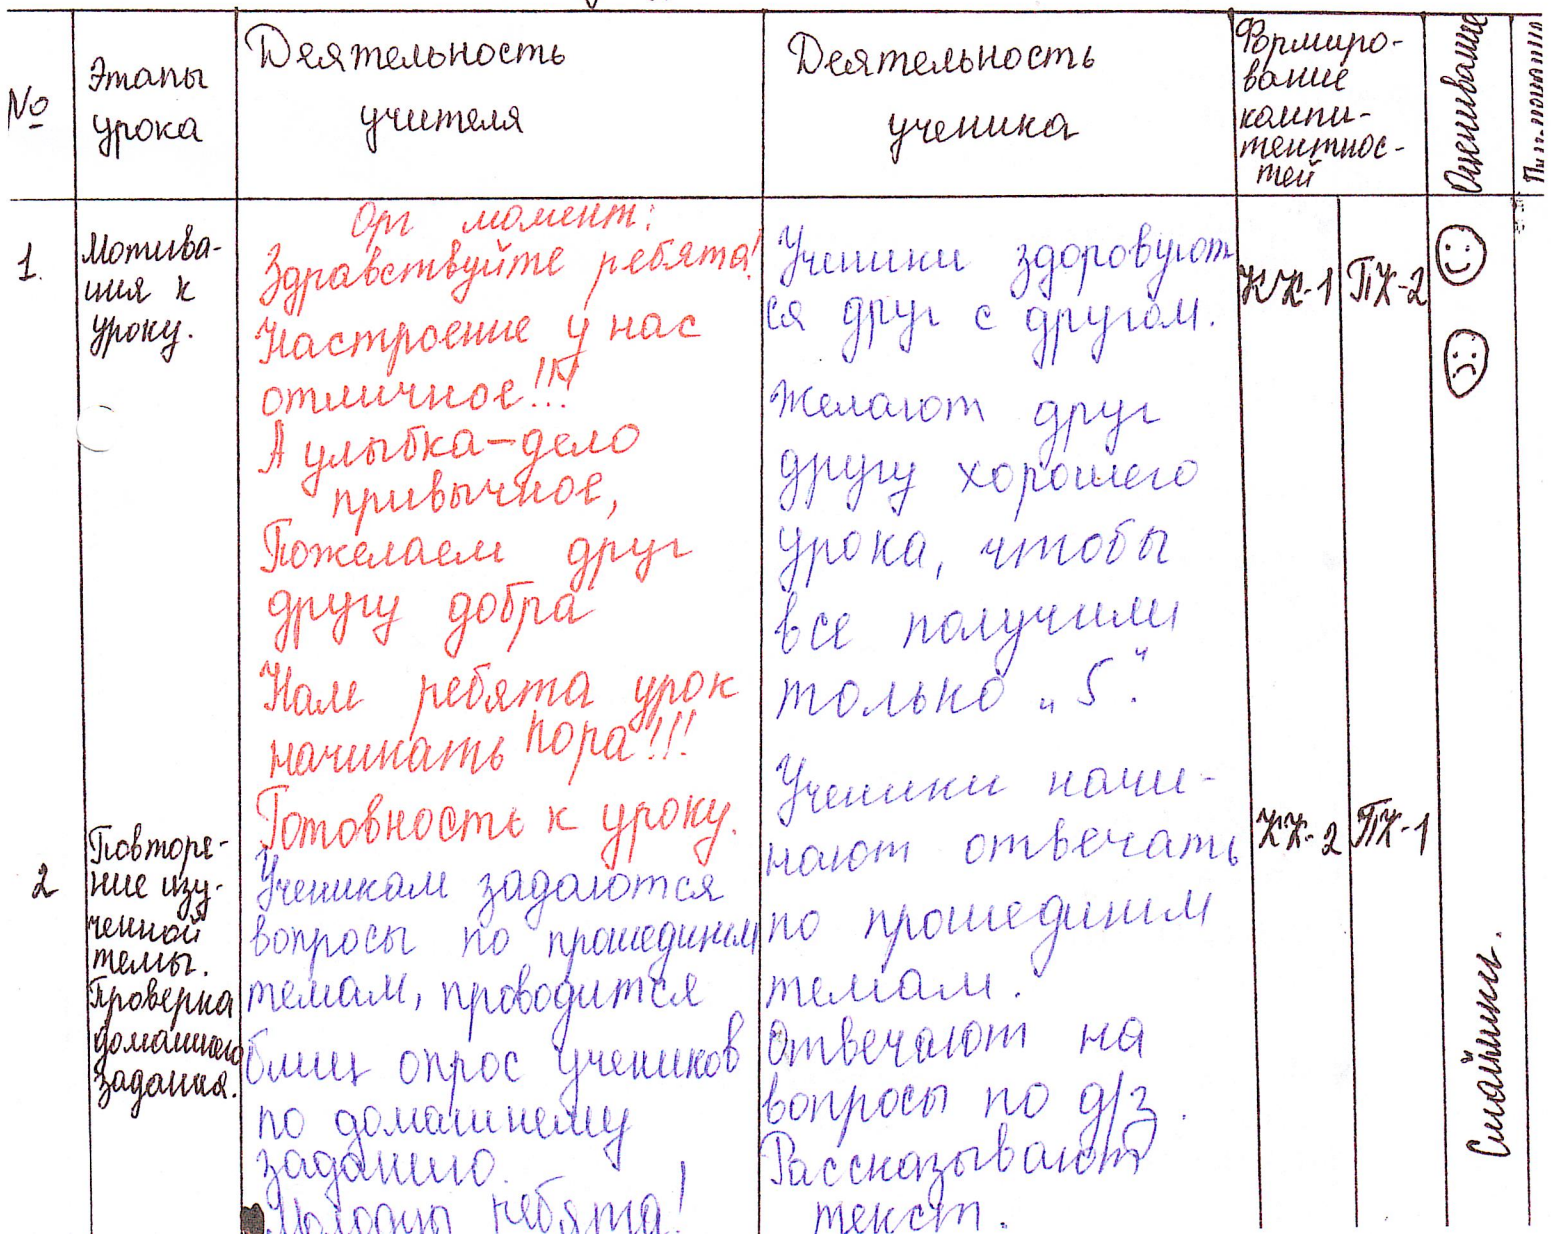 №
Этапы
урока
Деятельность
учителя
Деятельность
ученика
Формиро-
вание
компи-
тентнос-
тей
Оценивание
1.
Мотива-
ция к
уроку.
Орг момент:
Здравствуйте ребята!
Настроение у нас
отличное!!!
А улыбка-дело
привычное,
Пожелаем друг
другу добра
Нам ребята урок
начинать пора!!!
Готовность к уроку.
Ученики здоровуют
ся друг с другом.
Желают друг
другу хорошего
урока, чтобы
все получили
только „5".
КК-1
ПК-2
2
Повторе-
ние изу-
ченной
темы.
Проверка
домашнего
задания.
Ученикам задаются
вопросы по прошедшим
темам, проводится
блиц опрос учеников
по домашнему
заданию.
Молодцы ребята!
Ученики начи-
нают отвечать
по прошедшим
темам.
Отвечают на
вопросы по д/з.
Рассказывают
текст.
КК-2
ПК-1
Смайлики.